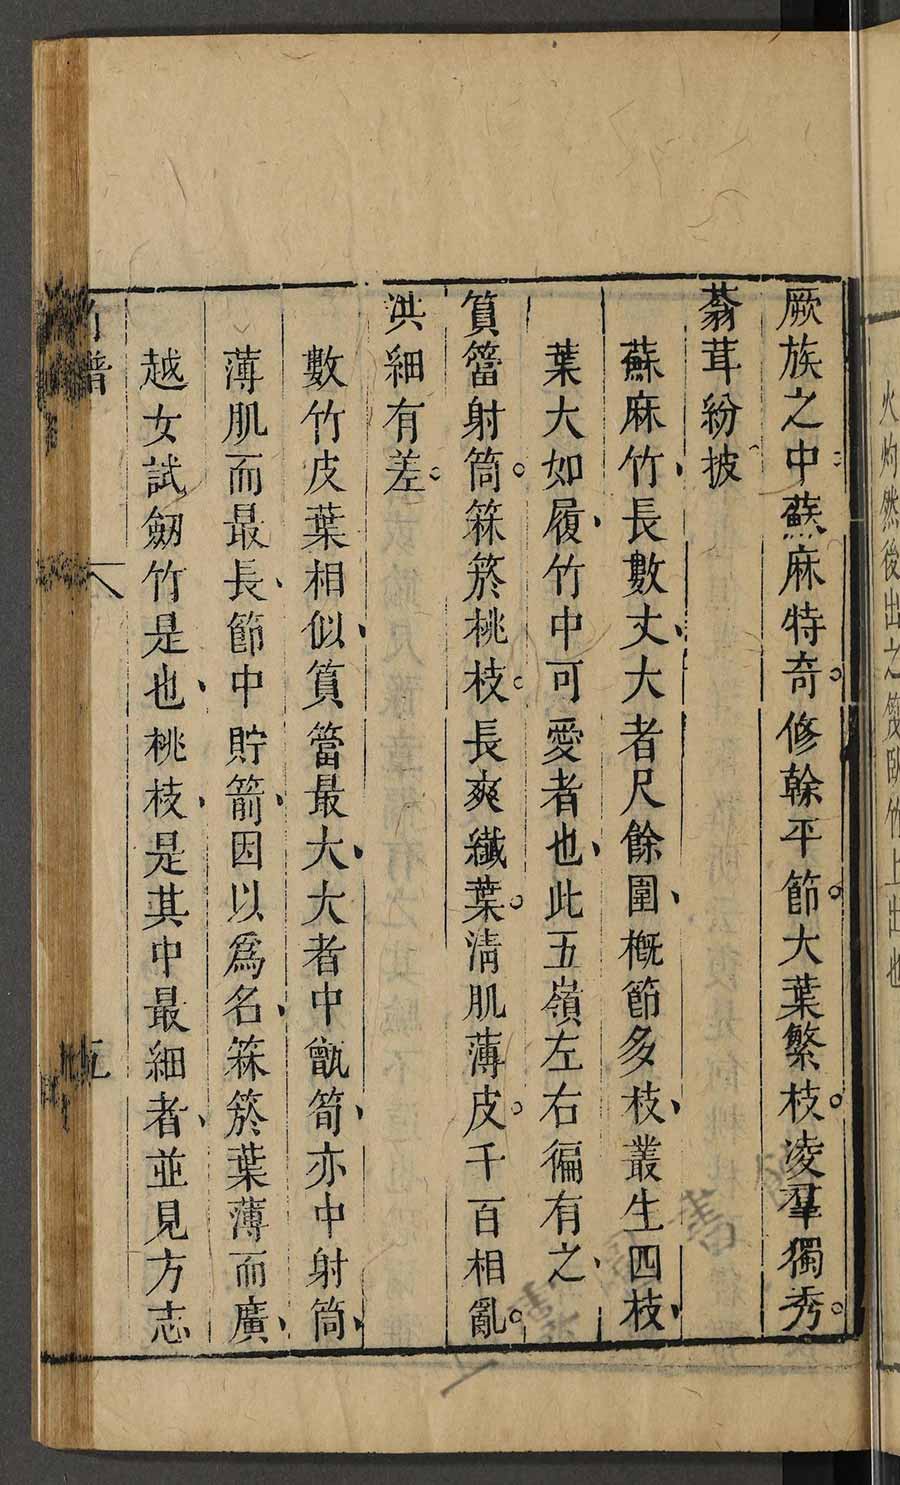 火灼然後出之筏臥竹上出也
厥族之中蘇麻特奇。修榦平節。大葉繁枝。凌羣獨秀。
蓊茸紛披
蘇麻竹、長數丈、大者尺餘圍、概節多枝、叢生四枝、
葉大如履、竹中可愛者也、此五嶺左右徧有之、
篔簹射筒。箖箊桃枝。長爽纖葉。淸肌薄皮。千百相亂。
洪細有差。
數竹皮葉相似、篔簹最大、大者中甑、筍亦中射筒、
薄肌而最長、節中貯箭、因以爲名、箖箊葉薄而廣、
越女試劒竹是也、桃枝、是其中最細者、並見方志
竹譜
五